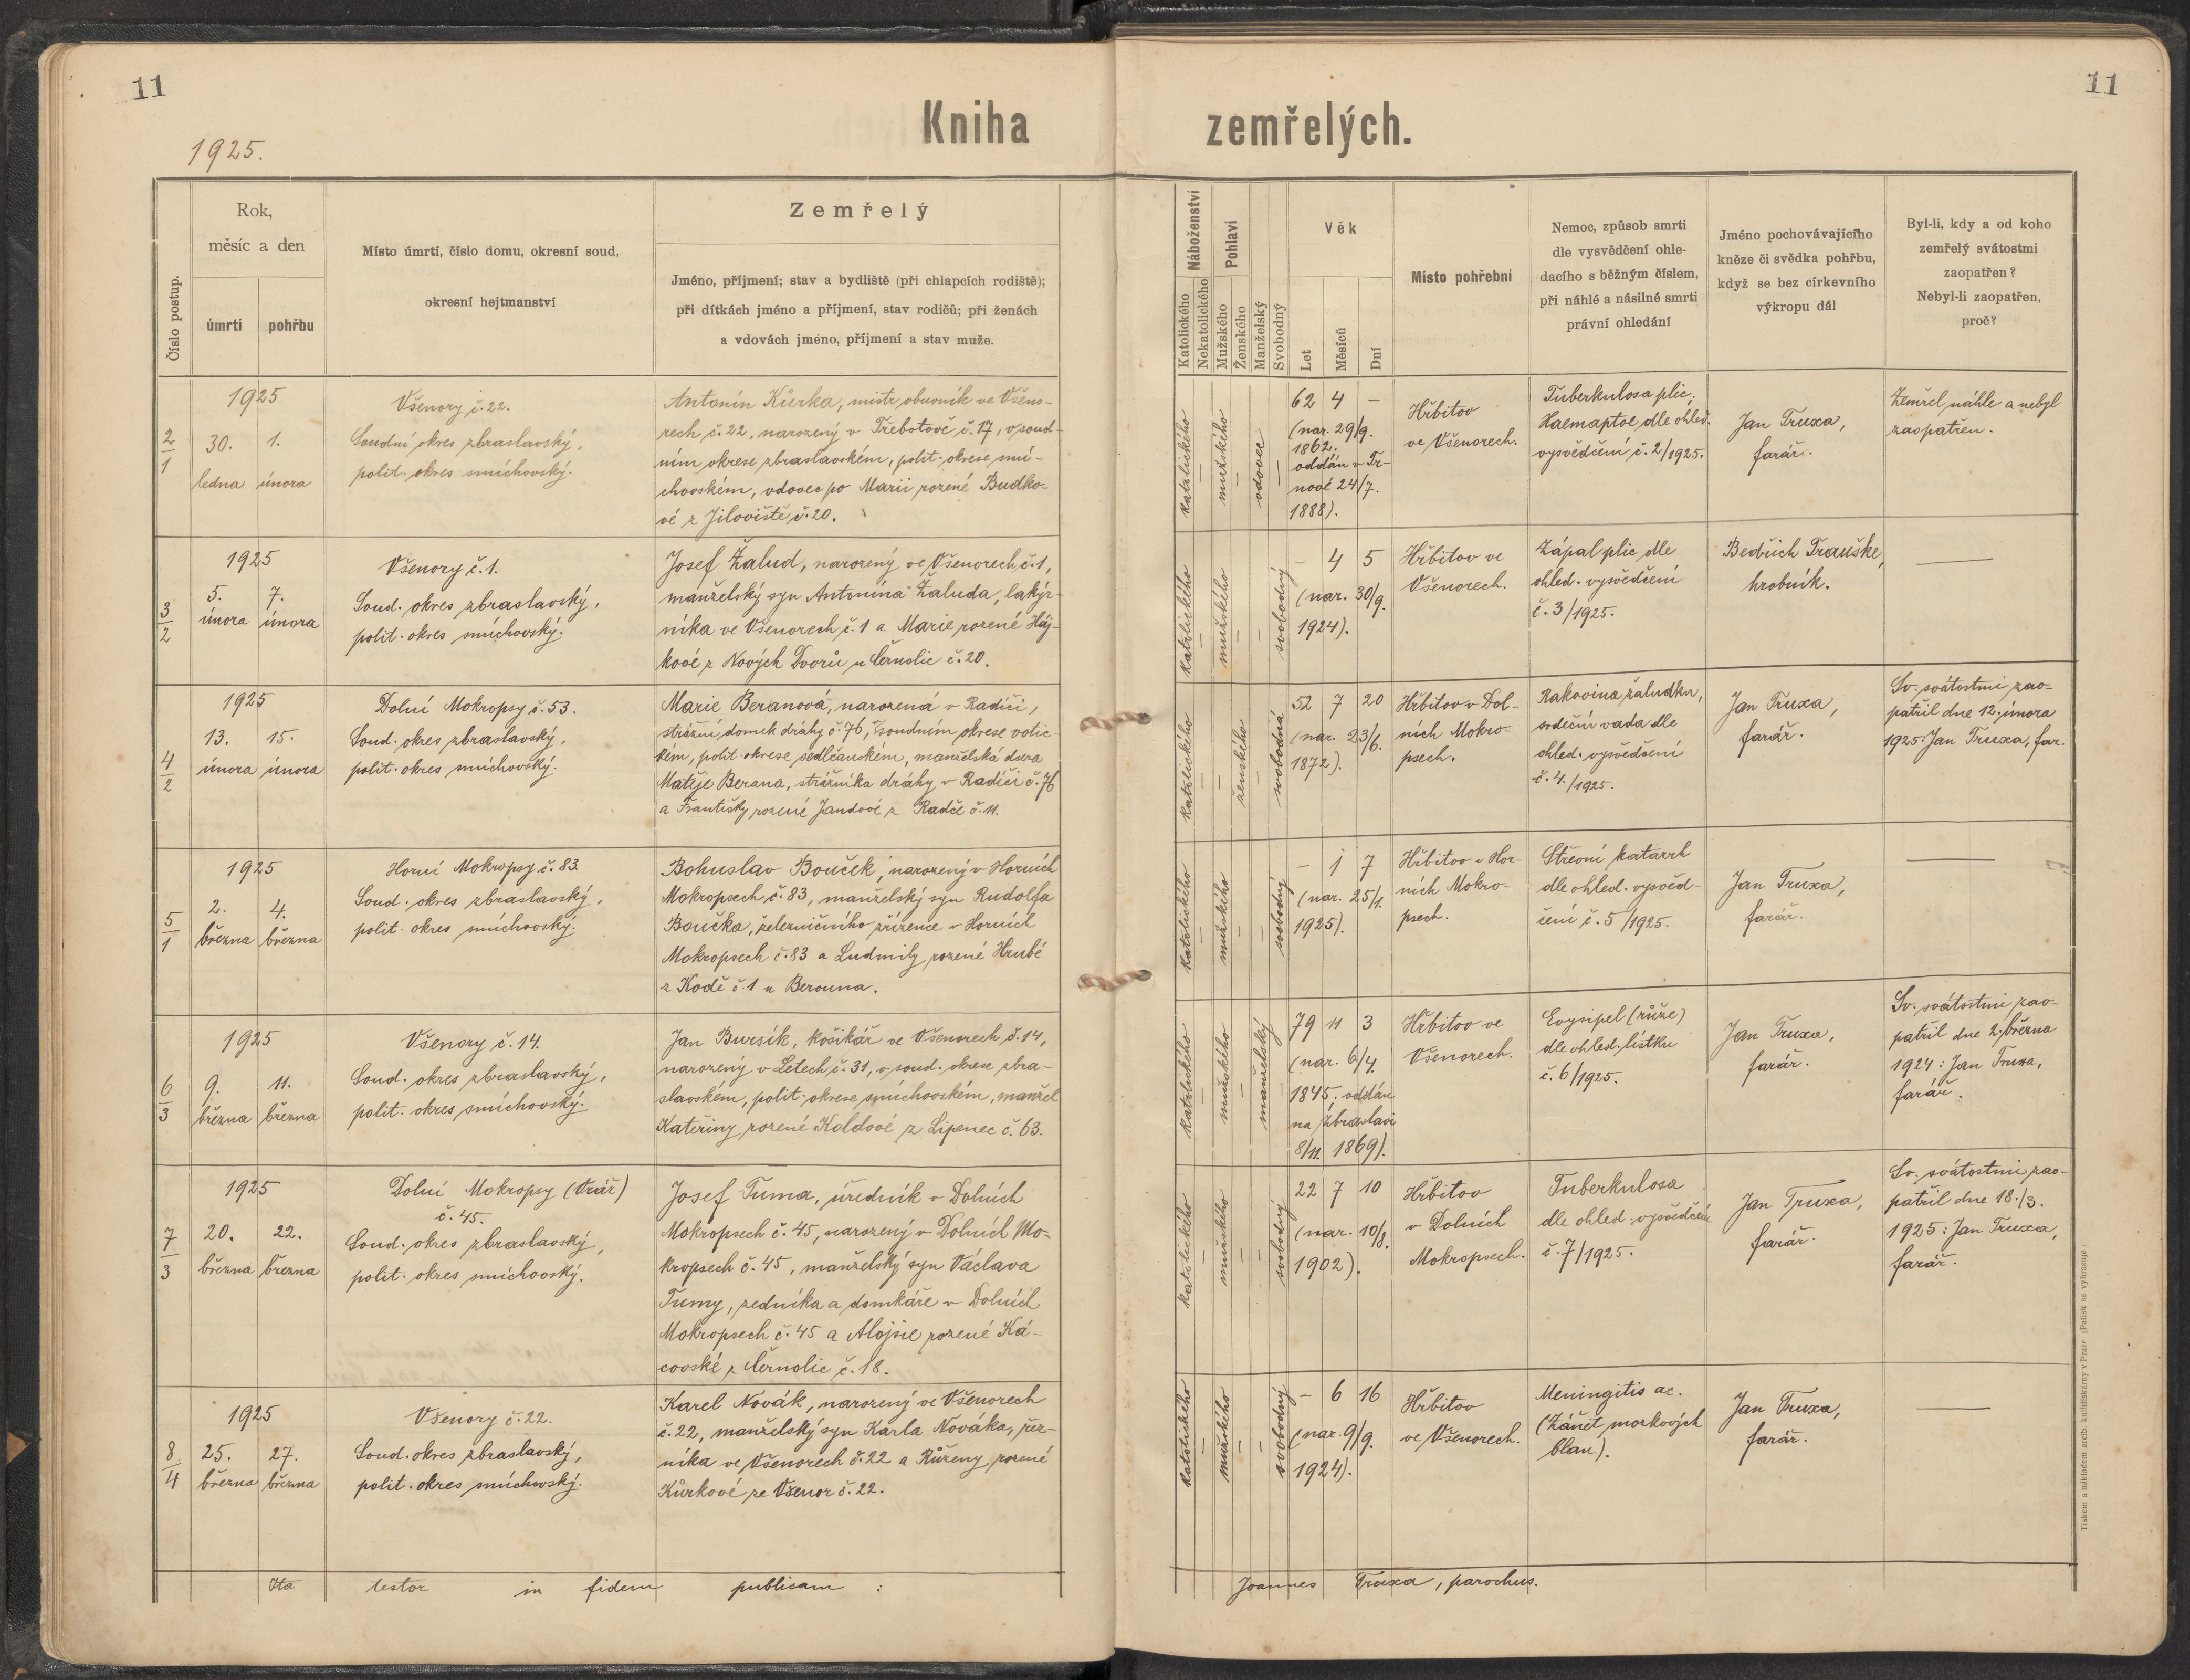 11
11
Kniha zemřelých.
1925.
Číslo postup.
Rok,
měsíc a den
úmrtí
pohřbu
Místo úmrtí, číslo domu, okresní soud,
okresní hejtmanství
Zemřelý
Jméno, příjmení; stav a bydliště (při chlapcích rodiště);
při dítkách jméno a příjmení, stav rodičů; při ženách
a vdovách jméno, příjmení a stav muže.
Náboženství
Katolického
Nekatolického
Pohlaví
Mužského
Ženského
Manželský
Svobodný
Věk
Let
Měsíců
Dní
Místo pohřební
Nemoc, způsob smrti
dle vysvědčení ohle-
dacího s běžným číslem,
při náhlé a násilné smrti
právní ohledání
Jméno pochovávajícího
kněze či svědka pohřbu,
když se bez církevního
výkropu dál
Byl-li, kdy a od koho
zemřelý svátostmi
zaopatřen?
Nebyl-li zaopatřen,
proč?
2/1
1925
30. 1.
ledna února
Všenory č. 22.
Soudní okres zbraslavský,
polit. okres smíchovský.
Antonín Kůrka, mistr obuvník ve Všeno-
rech č. 22, narozený v Třebotově č. 17, v soud-
ním okrese zbraslavském, polit. okrese smí-
chovském, vdovec po Marii rozené Budko-
vé z Jíloviště č. 20.
katolického
—
mužského
—
vdovec
—
62 4 —
(nar. 29/9.
1862.
oddán v Tr-
nové 24/7.
1888).
Hřbitov
ve Všenorech.
Tuberkulosa plic.
Haemaptoe, dle ohled.
vysvědčení č. 2/1925.
Jan Truxa,
farář.
Zemřel náhle a nebyl
zaopatřen.
3/2
1925
5. 7.
února února
Všenory č. 1.
Soud. okres zbraslavský,
polit. okres smíchovský.
Josef Žalud, narozený ve Všenorech č. 1,
manželský syn Antonína Žaluda, lakýr-
níka ve Všenorech č. 1 a Marie rozené Háj-
kové z Nových Dvorů u Černolic č. 20.
katolického
—
mužského
—
—
svobodný
— 4 5
(nar. 30/9.
1924).
Hřbitov ve
Všenorech.
Zápal plic dle
ohled. vysvědčení
č. 3/1925.
Bedřich Trauške,
hrobník.
—
4/2
1925
13. 15.
února února
Dolní Mokropsy č. 53.
Soud. okres zbraslavský,
polit. okres smíchovský.
Marie Beranová, narozená v Radíči,
strážní domek dráhy č. 76, v soudním okrese votic-
kém, polit. okrese sedlčanském, manželská dcera
Matěje Berana, strážníka dráhy v Radíči č. 76
a Františky rozené Jandové z Radče č. 11.
katolického
—
—
ženského
—
svobodná
52 7 20
(nar. 23/6.
1872).
Hřbitov v Dol-
ních Mokro-
psech.
Rakovina žaludku,
srdeční vada dle
ohled. vysvědčení
č. 4./1925.
Jan Truxa,
farář.
Sv. svátostmi zao-
patřil dne 12. února
1925: Jan Truxa, far.
5/1
1925
2. 4.
března března
Horní Mokropsy č. 83
Soud. okres zbraslavský,
polit. okres smíchovský.
Bohuslav Bouček, narozený v Horních
Mokropsech č. 83, manželský syn Rudolfa
Boučka, železničního zřízence v Horních
Mokropsech č. 83 a Ludmily rozené Hrubé
z Kodě č. 1 u Berouna.
katolického
—
mužského
—
—
svobodný
— 1 7
(nar. 25/1.
1925).
Hřbitov v Hor-
ních Mokro-
psech.
Střevní katarrh
dle ohled. vysvěd-
čení č. 5/1925.
Jan Truxa,
farář.
—
6/3
1925
9. 11.
března března
Všenory č. 14.
Soud. okres zbraslavský,
polit. okres smíchovský.
Jan Bursík, košíkář ve Všenorech č. 14,
narozený v Letech č. 31, v soud. okrese zbra-
slavském, polit. okrese smíchovském, manžel
Kateřiny rozené Koldové z Lipenec č. 63.
katolického
—
mužského
—
manželský
—
79 11 3
(nar. 6/4.
1845, oddán
na Zbraslavi
8/11. 1869).
Hřbitov ve
Všenorech.
Erysipel (růže)
dle ohled. lístku
č. 6/1925.
Jan Truxa,
farář.
Sv. svátostmi zao-
patřil dne 2. března
1924: Jan Truxa,
farář.
7/3
1925
20. 22.
března března
Dolní Mokropsy (Vráž)
č. 45.
Soud. okres zbraslavský,
polit. okres smíchovský.
Josef Tuma, úředník v Dolních
Mokropsech č. 45, narozený v Dolních Mo-
kropsech č. 45, manželský syn Václava
Tumy, zedníka a domkáře v Dolních
Mokropsech č. 45 a Aloisie rozené Ká-
covské z Černolic č. 18.
katolického
—
mužského
—
—
svobodný
22 7 10
(nar. 10/8.
1902).
Hřbitov
v Dolních
Mokropsech.
Tuberkulosa
dle ohled. vysvědčení
č. 7/1925.
Jan Truxa,
farář.
Sv. svátostmi zao-
patřil dne 18./3.
1925: Jan Truxa,
farář.
8/4
1925
25. 27.
března března
Všenory č. 22.
Soud. okres zbraslavský,
polit. okres smíchovský.
Karel Novák, narozený ve Všenorech
č. 22, manželský syn Karla Nováka, řez-
níka ve Všenorech č. 22 a Růženy rozené
Kůrkové ze Všenor č. 22.
katolického
—
mužského
—
—
svobodný
— 6 16
(nar. 9/9.
1924).
Hřbitov
ve Všenorech.
Meningitis ac.
(Zánět mozkových
blan).
Jan Truxa,
farář.
—
Ita testor in fidem publicam :
Joannes Truxa, parochus.
Tiskem a nákladem arcib. knihtiskárny v Praze (Patisk se vyhrazuje.)